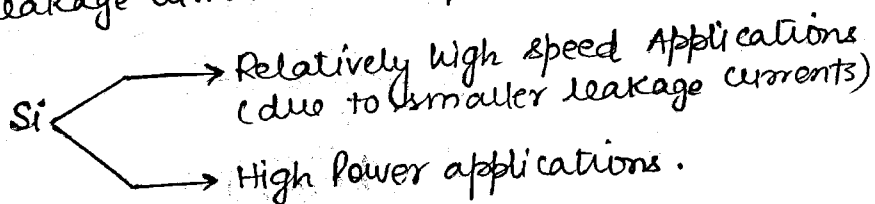 leakage
Relatively high speed Applications
Si
(due to smaller leakage currents)
High Power applications.